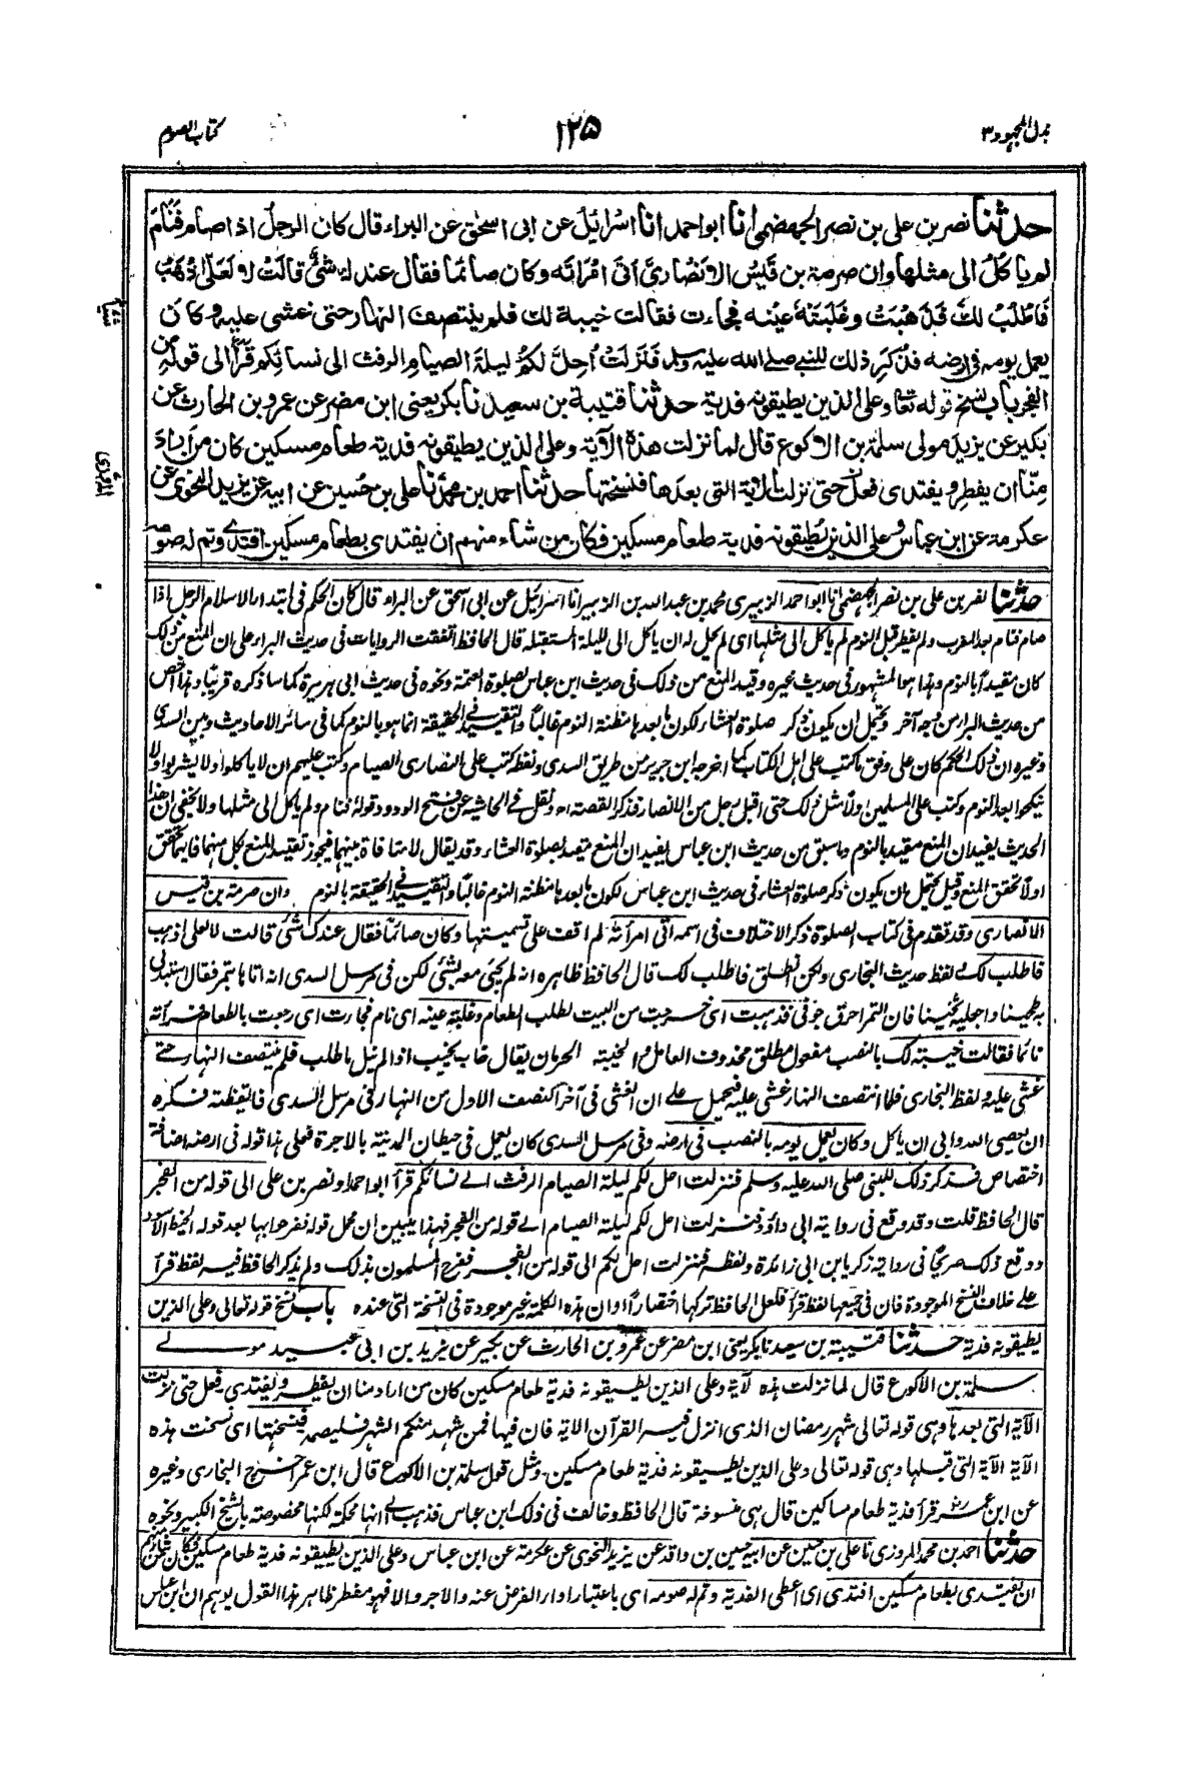 بذل المجهود ٣
١٢٥
كتاب الصوم
حدثنا نصر بن علي بن نصر الجهضمي انا ابو احمد انا اسرائيل عن ابى اسحٰق عن البراء قال كان الرجل اذا صام فنام
لم ياكل الى مثلها وان صرمة بن قيس الانصاري اتى امرأته وكان صائما فقال عندك شئ قالت لا لعلي اذهب
فاطلب لك فذهبت وغلبته عينه فجاءت فقالت خيبة لك فلم ينتصف النهار حتى غشي عليه وكان
يعمل يومه في ارضه فذكر ذلك للنبي صلى الله عليه وسلم فنزلت احل لكم ليلة الصيام الرفث الى نسائكم قرأ الى قوله من
الفجر باب نسخ قوله تعالى وعلى الذين يطيقونه فدية حدثنا قتيبة بن سعيد نا بكر يعنى ابن مضر عن عمرو بن الحارث عن
بكير عن يزيد مولى سلمة بن الاكوع قال لما نزلت هذه الآية وعلى الذين يطيقونه فدية طعام مسكين كان من اراد
منا ان يفطر ويفتدى فعل حتى نزلت الآية التي بعدها فنسختها حدثنا احمد بن محمد نا علي بن حسين عن ابيه عن يزيد النحوي عن
عكرمة عن ابن عباس وعلى الذين يطيقونه فدية طعام مسكين فكان من شاء منهم ان يفتدى بطعام مسكين افتدى وتم له صومه
حدثنا نصر بن علي بن نصر الجهضمي انا ابو احمد الزبيري محمد بن عبد الله بن الزبير انا اسرائيل عن ابى اسحق عن البراء قال كان الحكم في ابتداء الاسلام الرجل اذا
صام فنام بعد المغرب ولم يفطر قبل النوم لم ياكل الى مثلها اى لم يحل له ان ياكل الى لليلة المستقبلة قال الحافظ اتفقت الروايات في حديث البراء على ان المنع من ذلك
كان مقيدا بالنوم وهذا هو المشهور في حديث غيره وقيد المنع من ذلك في حديث ابن عباس بصلوة العتمة ونحوه في حديث ابى هريرة كما ساذكره قريبا وهذا اخص
من حديث البراء من وجه آخر ويحتمل ان يكون ذكر صلوة العشاء لكون ما بعدها مظنة النوم غالبا والتقييد في الحقيقة انما هو بالنوم كما في سائر الاحاديث وبين السدى
وغيره ان ذلك الحكم كان على وفق ما كتب على اهل الكتاب كما اخرجه ابن جرير من طريق السدى ولفظ كتب على النصارى الصيام وكتب عليهم ان لا ياكلوا ولا يشربوا ولا
ينكحوا بعد النوم وكتب على المسلمين اولا مثل ذلك حتى اقبل رجل من الانصار فذكر القصة اه ونقل في الحاشية عن فتح الودود قوله فنام ولم ياكل الى مثلها ولا يخفى ان هذا
الحديث يفيد ان المنع مقيد بالنوم وما سبق من حديث ابن عباس يفيد ان المنع مقيد بصلوة العشاء وقد يقال لا منافاة بينهما فيجوز تقييد المنع بكل منهما فايهما تحقق
اولا تحقق المنع وقيل يحتمل ان يكون ذكر صلوة العشاء في حديث ابن عباس لكون ما بعدها مظنة النوم غالبا والتقييد في الحقيقة بالنوم وان صرمة بن قيس
الانصاري وقد تقدم في كتاب الصلوة ذكر الاختلاف في اسمه اتى امرأته لم اقف على تسميتها وكان صائما فقال عندك شئ قالت لا لعلى اذهب
فاطلب لك ولفظ حديث البخاري ولكن انطلق فاطلب لك قال الحافظ ظاهره انه لم يجئ معه بشئ لكن في مرسل السدى انه اتاها بتمر فقال استبدلى
به طحينا واجعليه سخينا فان التمر احرق جوفى فذهبت اى خرجت من البيت لطلب الطعام وغلبته عينه اى نام فجاءت اى رجعت بالطعام فرأته
نائما فقالت خيبة لك بالنصب مفعول مطلق محذوف العامل والخيبة الحرمان يقال خاب يخيب اذا لم ينل ما طلب فلم ينتصف النهار حتى
غشى عليه ولفظ البخاري فلما انتصف النهار غشى عليه فيحمل على ان الغشى في آخر النصف الاول من النهار وفى مرسل السدى فايقظته فكره
ان يعصى الله وابى ان ياكل وكان يعمل يومه بالنصب في ارضه وفى مرسل السدى كان يعمل في حيطان المدينة بالاجرة فعلى هذا قوله في ارضه اضافة
اختصاص فذكر ذلك للنبي صلى الله عليه وسلم فنزلت احل لكم ليلة الصيام الرفث الى نسائكم قرأ ابو احمد او نصر بن على الى قوله من الفجر
قال الحافظ قلت وقد وقع في رواية ابى داؤد فنزلت احل لكم ليلة الصيام الى قوله من الفجر فهذا يبين ان محل قوله ففرحوا بها بعد قوله الخيط الاسود
ووقع ذلك صريحا في رواية زكريا بن ابى زائدة ولفظه فنزلت احل لكم الى قوله من الفجر ففرح المسلمون بذلك ولم يذكر الحافظ فيه لفظ قرأ
على خلاف النسخ الموجودة فان في جميعها لفظ قرأ فلعل الحافظ تركها اختصارا او ان هذه الكلمة غير موجودة في النسخة التى عنده باب نسخ قوله تعالى وعلى الذين
يطيقونه فدية حدثنا قتيبة بن سعيد نا بكر يعنى ابن مضر عن عمرو بن الحارث عن بكير عن يزيد بن ابى عبيد مولى
سلمة بن الاكوع قال لما نزلت هذه لآية وعلى الذين يطيقونه فدية طعام مسكين كان من اراد منا ان يفطر ويفتدى فعل حتى نزلت
الآية التى بعدها وهى قوله تعالى شهر رمضان الذى انزل فيه القرآن الاية فان فيها فمن شهد منكم الشهر فليصمه فنسختها اى نسخت هذه
الآية الآية التى قبلها وهى قوله تعالى وعلى الذين يطيقونه فدية طعام مسكين ومثل قول سلمة بن الاكوع قال ابن عمر اخرج البخارى وغيره
عن ابن عمر قرأ فدية طعام مساكين قال هى منسوخة قال الحافظ وخالف في ذلك ابن عباس فذهب الى انها محكمة لكنها مخصوصة بالشيخ الكبير ونحوه
حدثنا احمد بن محمد المروزى نا على بن حسين عن ابيه حسين بن واقد عن يزيد النحوى عن عكرمة عن ابن عباس وعلى الذين يطيقونه فدية طعام مسكين فكان من شاء منهم
ان يفتدى بطعام مسكين افتدى اى اعطى الفدية وتم له صومه اى باعتبار اداء الفرض عنه والاجر والا فهو مفطر ظاهر هذا القول يوهم ان ابن عباس